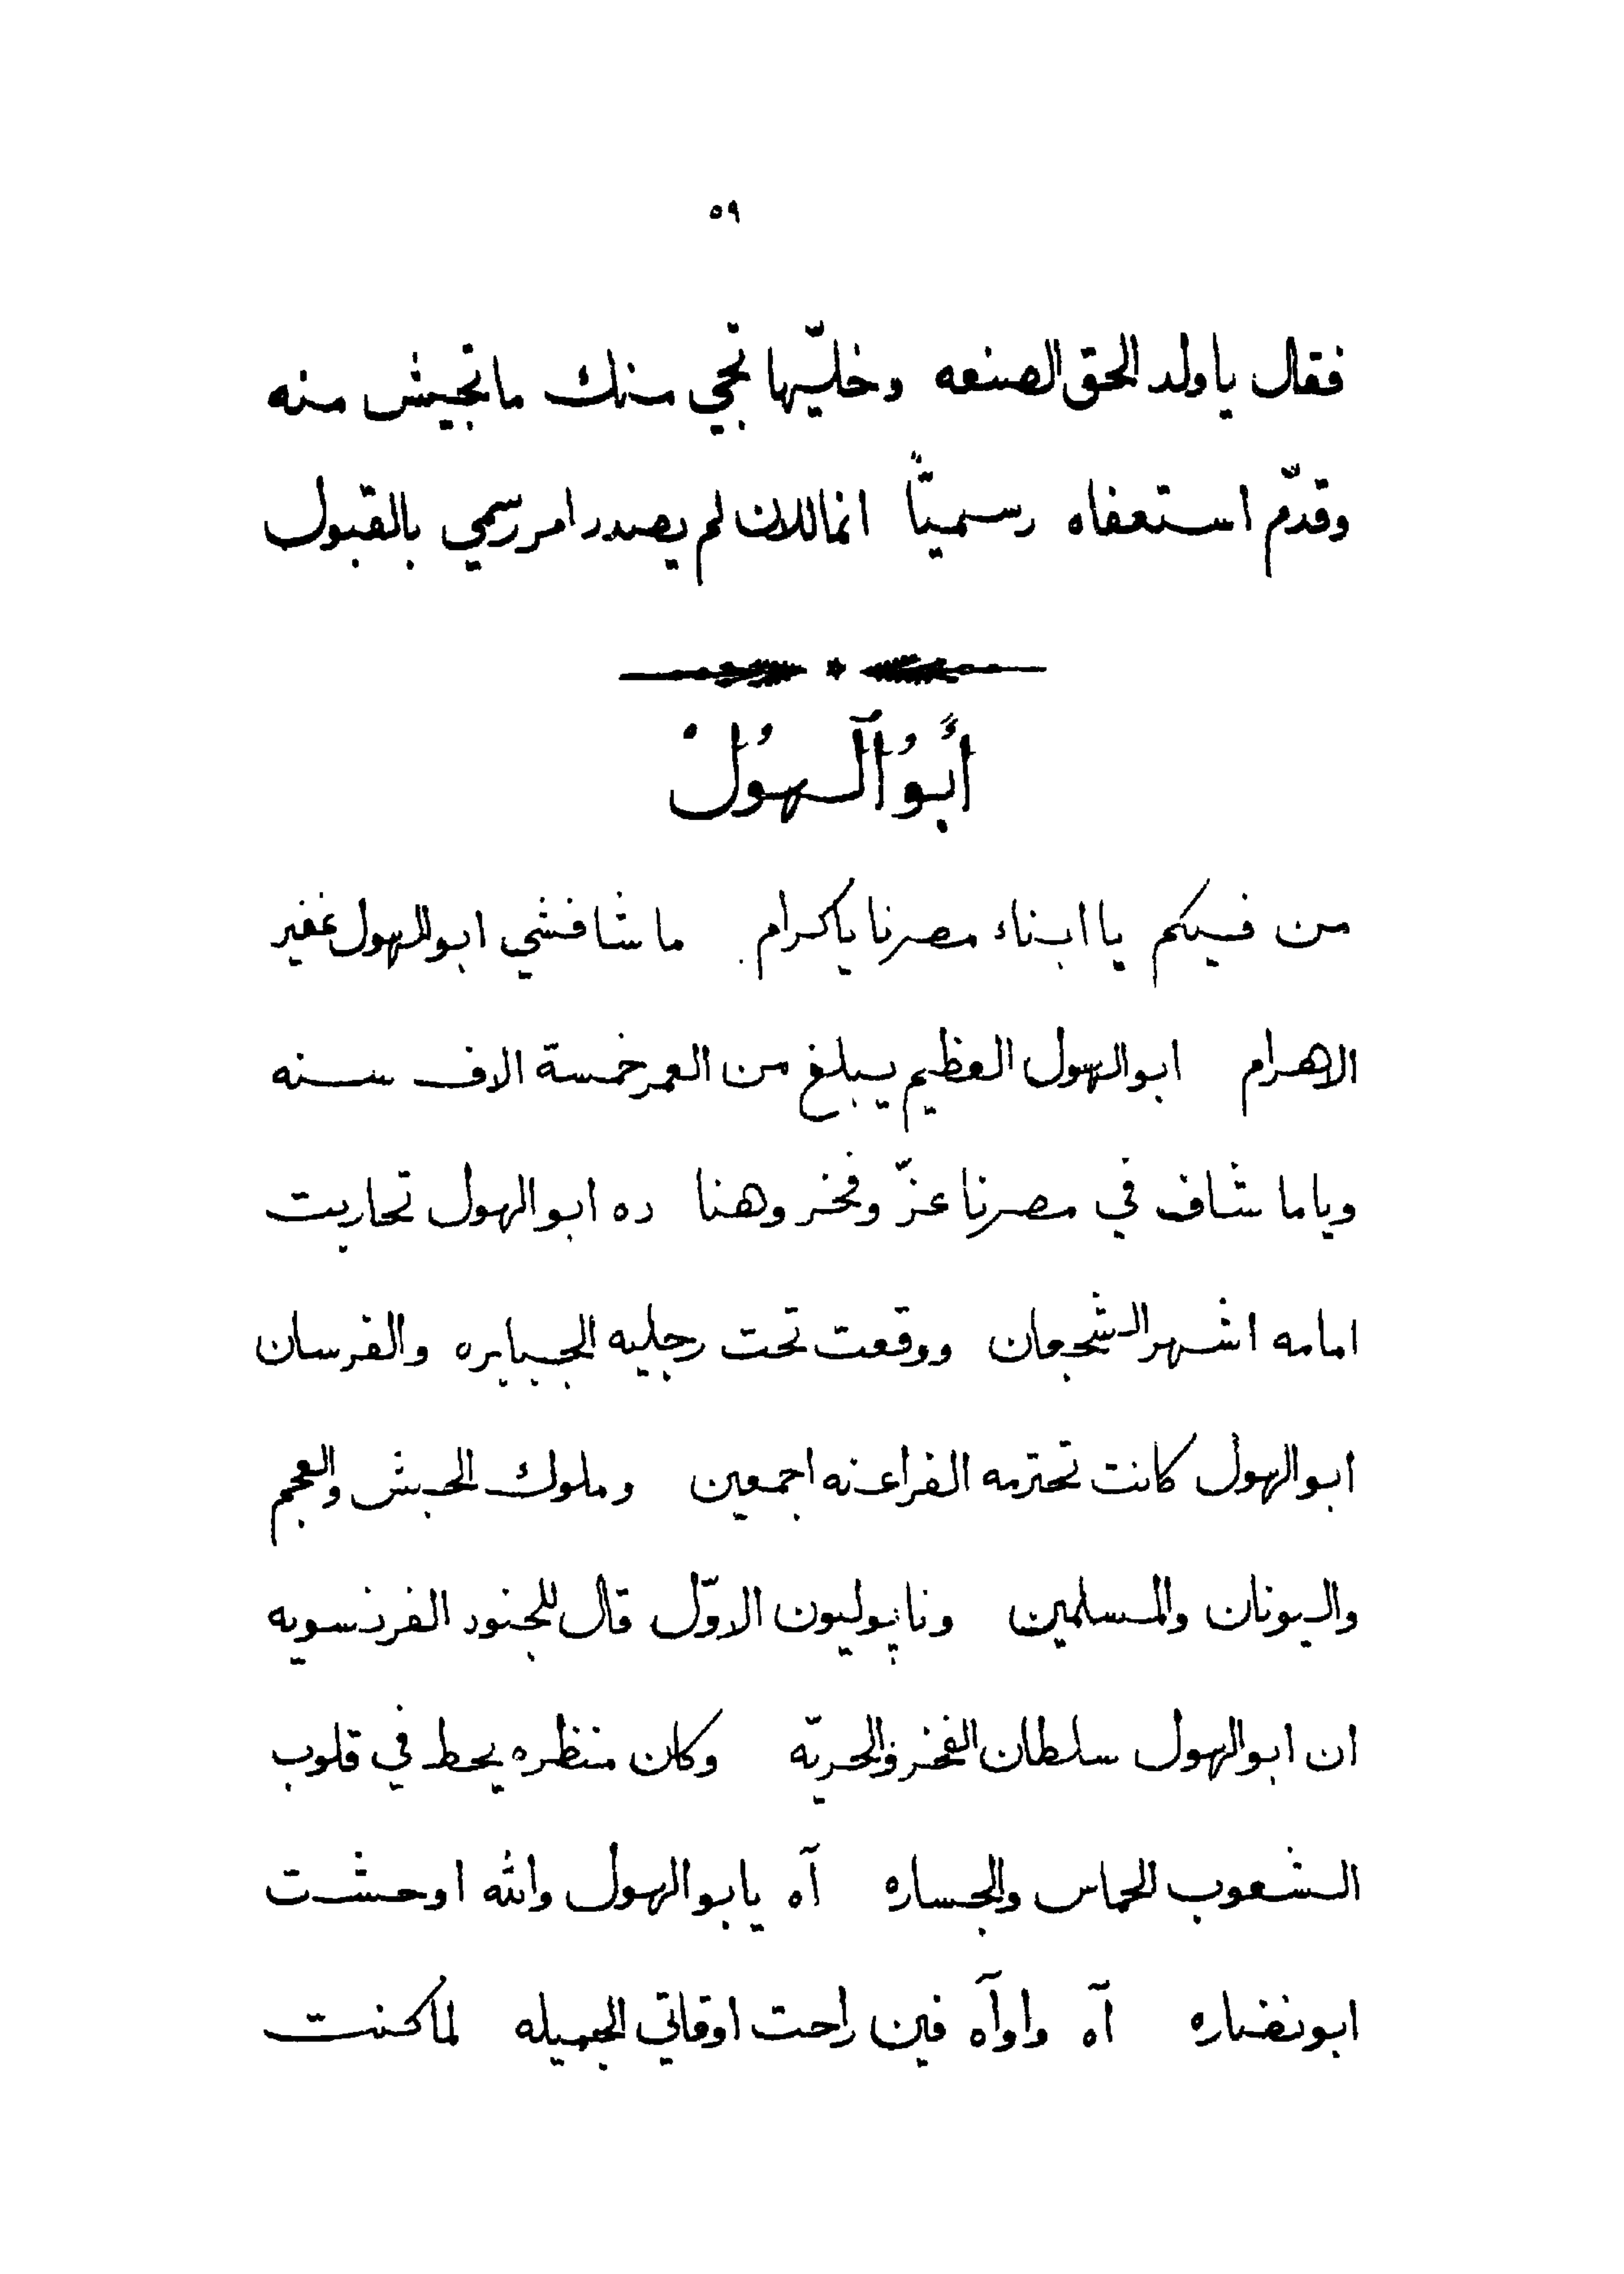 ٥٩
فقال ياولد الحق الصنعه وخليّها تجي منك ماتجيش منه
وقدّم استعفاه رسميّاً انماللان لم يصدر امر رسمي بالقبول
أَبُو ٱلْهُولْ
من فيكم يا ابناء مصرنا ياكرام . ما شافشي ابو الهول غفير
الاهرام ابو الهول العظيم يبلغ من العمر خمسة الاف سنه
وياما شاف في مصرنا عزّ وفخر وهنا ده ابو الهول تحاربت
امامه اشهر الشجعان ووقعت تحت رجليه الجبابره والفرسان
ابو الهول كانت تحترمه الفراعنه اجمعين وملوك الحبش والعجم
واليونان والمسلمين وناپوليون الاوّل قال للجنود الفرنسويه
ان ابو الهول سلطان الفخر والحريّه وكان منظره يحط في قلوب
الشعوب الحماس والجساره آه يابو الهول والله اوحشت
ابونضاره آه واوآه فين راحت اوقاتي الجميله لما كنت